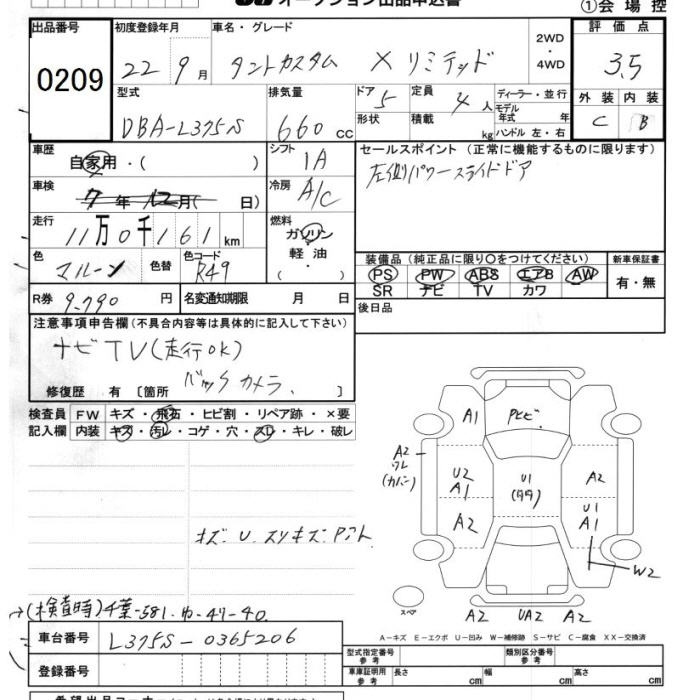 オークション出品申込書
①会場控
出品番号 初度登録年月 車名・グレード 評価点
0209 22 9月 タントカスタム Xリミテッド 2WD・4WD 3.5
型式 排気量 ドア 5 定員 4人 ディーラー・並行 外装 内装
DBA-L375S 660CC 形状 積載 kg モデル年式 年 ハンドル 左・右 C B
車歴 シフト セールスポイント (正常に機能するものに限ります)
自家用・( ) IA 左側パワースライドドア
車検 7年12月( 日) 冷房 A/C
走行 11万0千161km 燃料 ガソリン 軽油 ( ・ )
色 マルーン 色替 色コード R49
装備品(純正品に限り○をつけてください) 新車保証書
PS PW ABS エアB AW 有・無
SR ナビ TV カワ
R券 9,790円 名変通知期限 月 日 後日品
注意事項申告欄(不具合内容等は具体的に記入して下さい)
ナビTV(走行OK)
バックカメラ、
修復歴 有 〔箇所 〕
検査員 FW キズ・飛石・ヒビ割・リペア跡・×要
記入欄 内装 キズ・汚レ・コゲ・穴・スレ・キレ・破レ
A1 Pヒビ
A2 ワレ (カバー) U2 A1 U1 A2
A2 U1 A1
W2
キズ U スリキズ
スペア A2 UA2 A2
(検査時)千葉-581-わ-47-40
A－キズ E－エクボ U－凹み W－補修跡 S－サビ C－腐食 XX－交換済
車台番号 L375S-0365206
型式指定番号 参考 類別区分番号 参考
登録番号 車庫証明用 参考 長さ 幅 高さ
希望出品コーナー